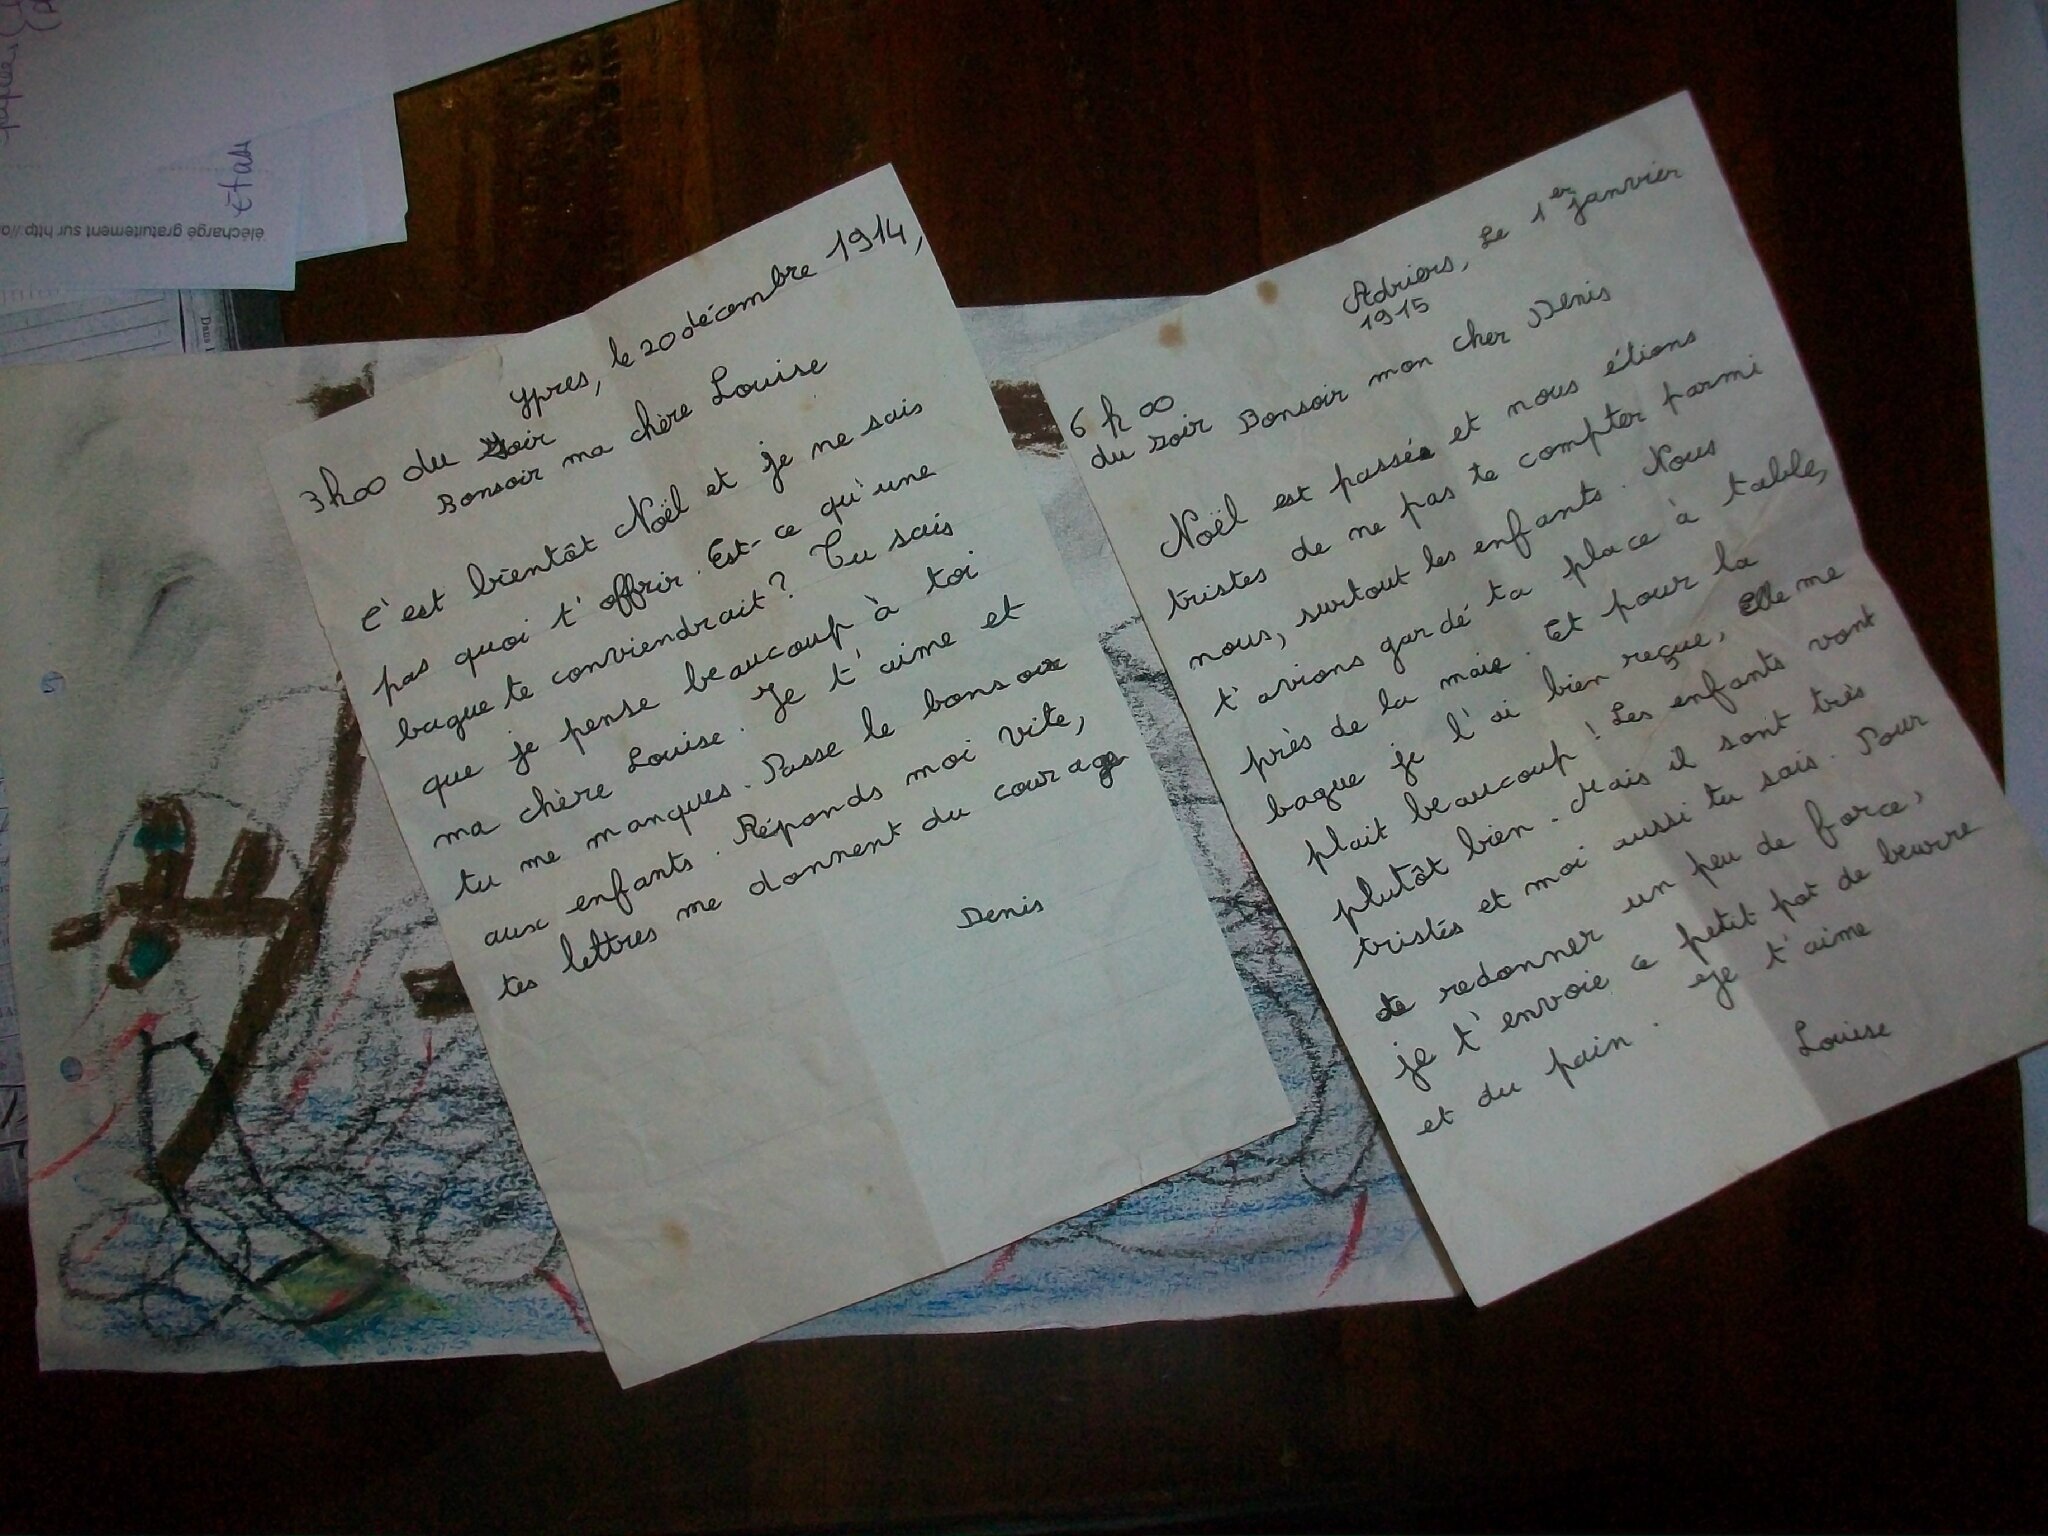 étab
éléchargé gratuitement sur http://
Ypres, le 20 décembre 1914,
3h00 du soir
Bonsoir ma chère Louise
C'est bientôt Noël et je ne sais
pas quoi t'offrir. Est-ce qu'une
bague te conviendrait? Tu sais
que je pense beaucoup à toi
ma chère Louise. Je t'aime et
tu me manques. Passe le bonsoir
aux enfants. Réponds moi vite,
tes lettres me donnent du courage
Denis
Adriers, Le 1er janvier
1915
6 h 00
du soir Bonsoir mon cher Denis
Noël est passée et nous étions
tristes de ne pas te compter parmi
nous, surtout les enfants. Nous
t'avions gardé ta place à table,
près de la maie. Et pour la
bague je l'ai bien reçue, Elle me
plait beaucoup! Les enfants vont
plutôt bien. Mais il sont très
tristes et moi aussi tu sais. Pour
te redonner un peu de force,
je t'envoie ce petit pot de beurre
et du pain. Je t'aime
Louise